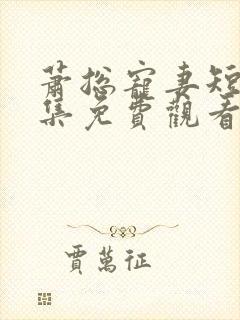 蕭總寵妻短
集免費觀看
賈萬征